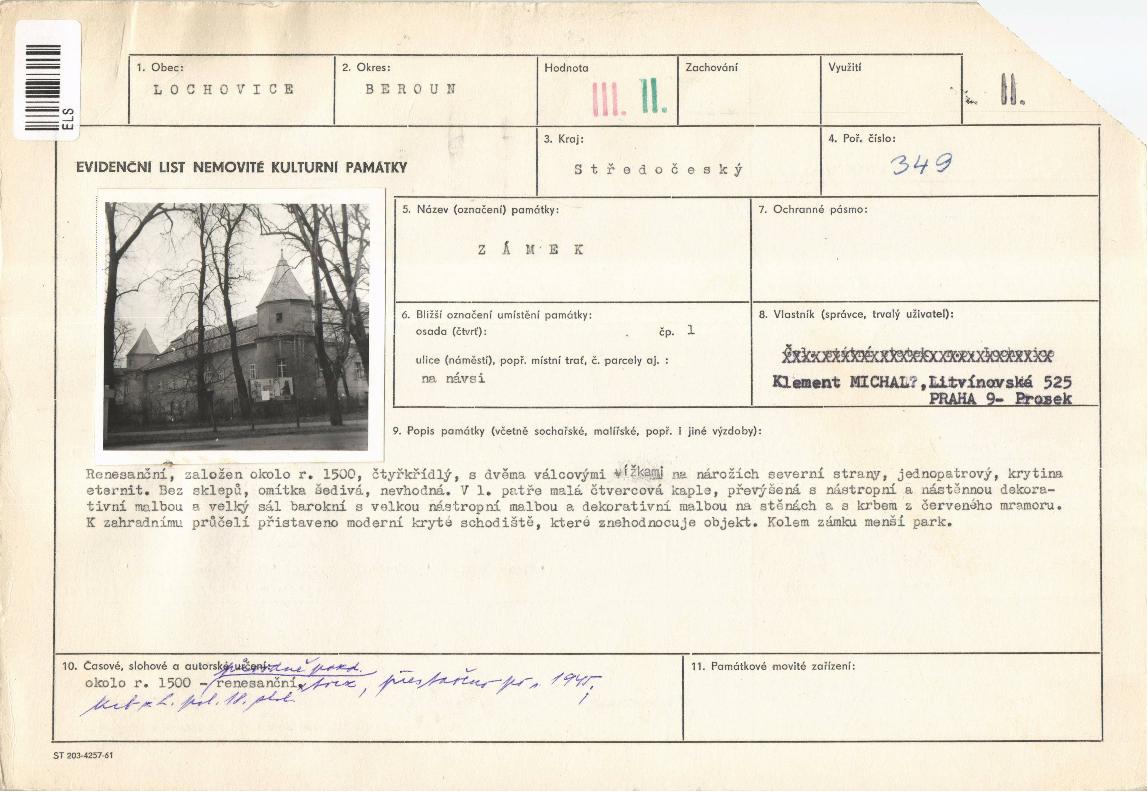 ELS
1. Obec:
LOCHOVICE
2. Okres:
BEROUN
Hodnota
III. II.
Zachování
Využití
II.
EVIDENČNÍ LIST NEMOVITÉ KULTURNÍ PAMÁTKY
3. Kraj:
Středočeský
4. Poř. číslo:
349
5. Název (označení) památky:
ZÁMEK
7. Ochranné pásmo:
6. Bližší označení umístění památky:
osada (čtvrť): čp. 1
ulice (náměstí), popř. místní trať, č. parcely aj. :
na návsi
8. Vlastník (správce, trvalý uživatel):
Klement MICHAL?,Litvínovská 525
PRAHA 9- Prosek
9. Popis památky (včetně sochařské, malířské, popř. i jiné výzdoby):
Renesanční, založen okolo r. 1500, čtyřkřídlý, s dvěma válcovými vížkami na nárožích severní strany, jednopatrový, krytina
eternit. Bez sklepů, omítka šedivá, nevhodná. V 1. patře malá čtvercová kaple, převýšená s nástropní a nástěnnou dekora-
tivní malbou a velký sál barokní s velkou nástropní malbou a dekorativní malbou na stěnách a s krbem z červeného mramoru.
K zahradnímu průčelí přistaveno moderní kryté schodiště, které znehodnocuje objekt. Kolem zámku menší park.
10. Časové, slohové a autorské určení:
okolo r. 1500 - renesanční,
pol. 18. stol.
11. Památkové movité zařízení:
ST 203-4257-61